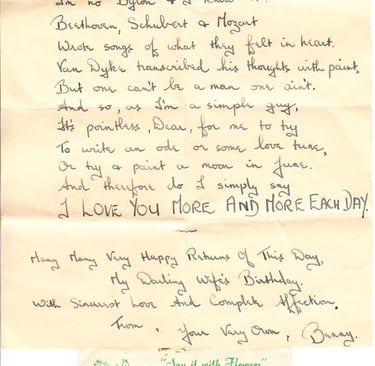 I'm no Byron & I know it.
Beethoven, Schubert & Mozart
Wrote songs of what they felt in heart.
Van Dyke transcribed his thoughts with paint,
But one can't be a man one ain't.
And so, as I'm a simple guy,
It's pointless, Dear, for me to try
To write an ode or some love tune,
Or try & paint a moon in June.
And therefore do I simply say
I LOVE YOU MORE AND MORE EACH DAY.
Many Many Very Happy Returns Of This Day,
My Darling Wife's Birthday.
With Sincerest Love And Complete Affection.
From, Your Very Own, Bunny.
"Say it with Flowers"